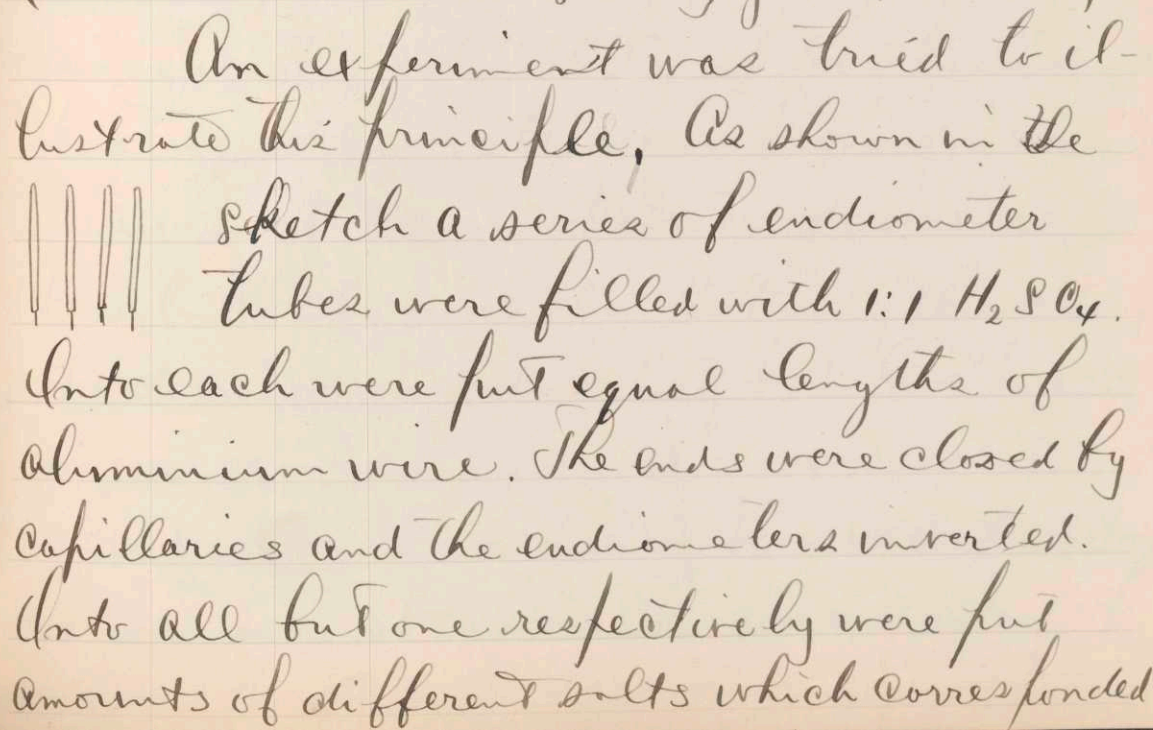 An experiment was tried to il-
lustrate this principle. As shown in the
sketch a series of endiometer
tubes were filled with 1:1 H₂SO₄.
Into each were put equal lengths of
aluminium wire. The ends were closed by
capillaries and the endiometers inverted.
Into all but one respectively were put
amounts of different salts which corresponded